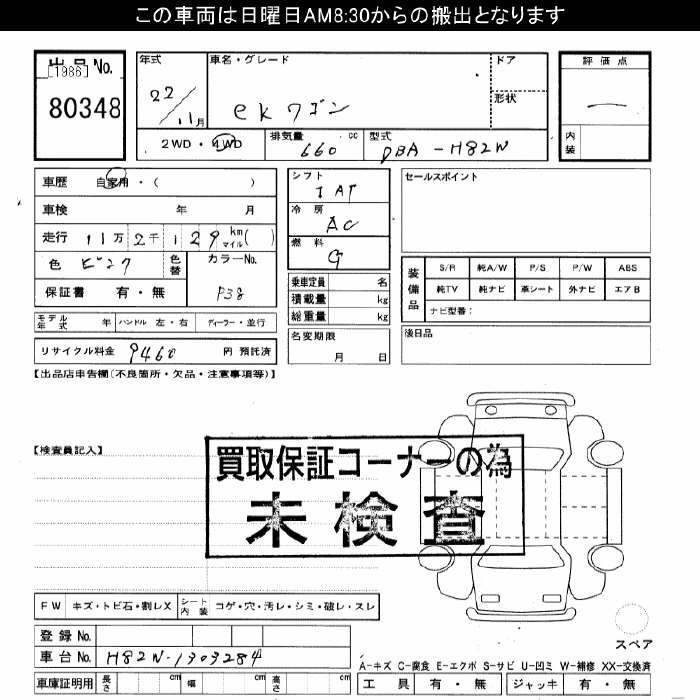 この車両は日曜日AM8:30からの搬出となります
出品No.
[1986]
80348
年式
22/11月
車名・グレード
ekワゴン
ドア
形状
評価点
—
内装
2WD・4WD
排気量
660 cc
型式
DBA-H82W
車歴 自家用・( )
車検 年 月
走行 11万2千129 km マイル( )
色 ピンク
色替
カラーNo.
P38
保証書 有・無
シフト
IAT
冷房
AC
燃料
G
乗車定員 名
積載量 kg
総重量 kg
名変期限
月 日
セールスポイント
装備品
S/R 純A/W P/S P/W ABS
純TV 純ナビ 革シート 外ナビ エアB
ナビ型番:
後日品
モデル年式 年 ハンドル 左・右 ディーラー・並行
リサイクル料金 9460 円 預託済
【出品店申告欄(不良箇所・欠品・注意事項等)】
【検査員記入】
買取保証コーナーの為
未検査
FW キズ・トビ石・割レX
シート内装 コゲ・穴・汚レ・シミ・破レ・スレ
スペア
登録No.
車台No. H82W-1303284
A-キズ C-腐食 E-エクボ S-サビ U-凹ミ W-補修 XX-交換済
車庫証明用 長さ cm 幅 cm 高さ cm
工具 有・無 ジャッキ 有・無